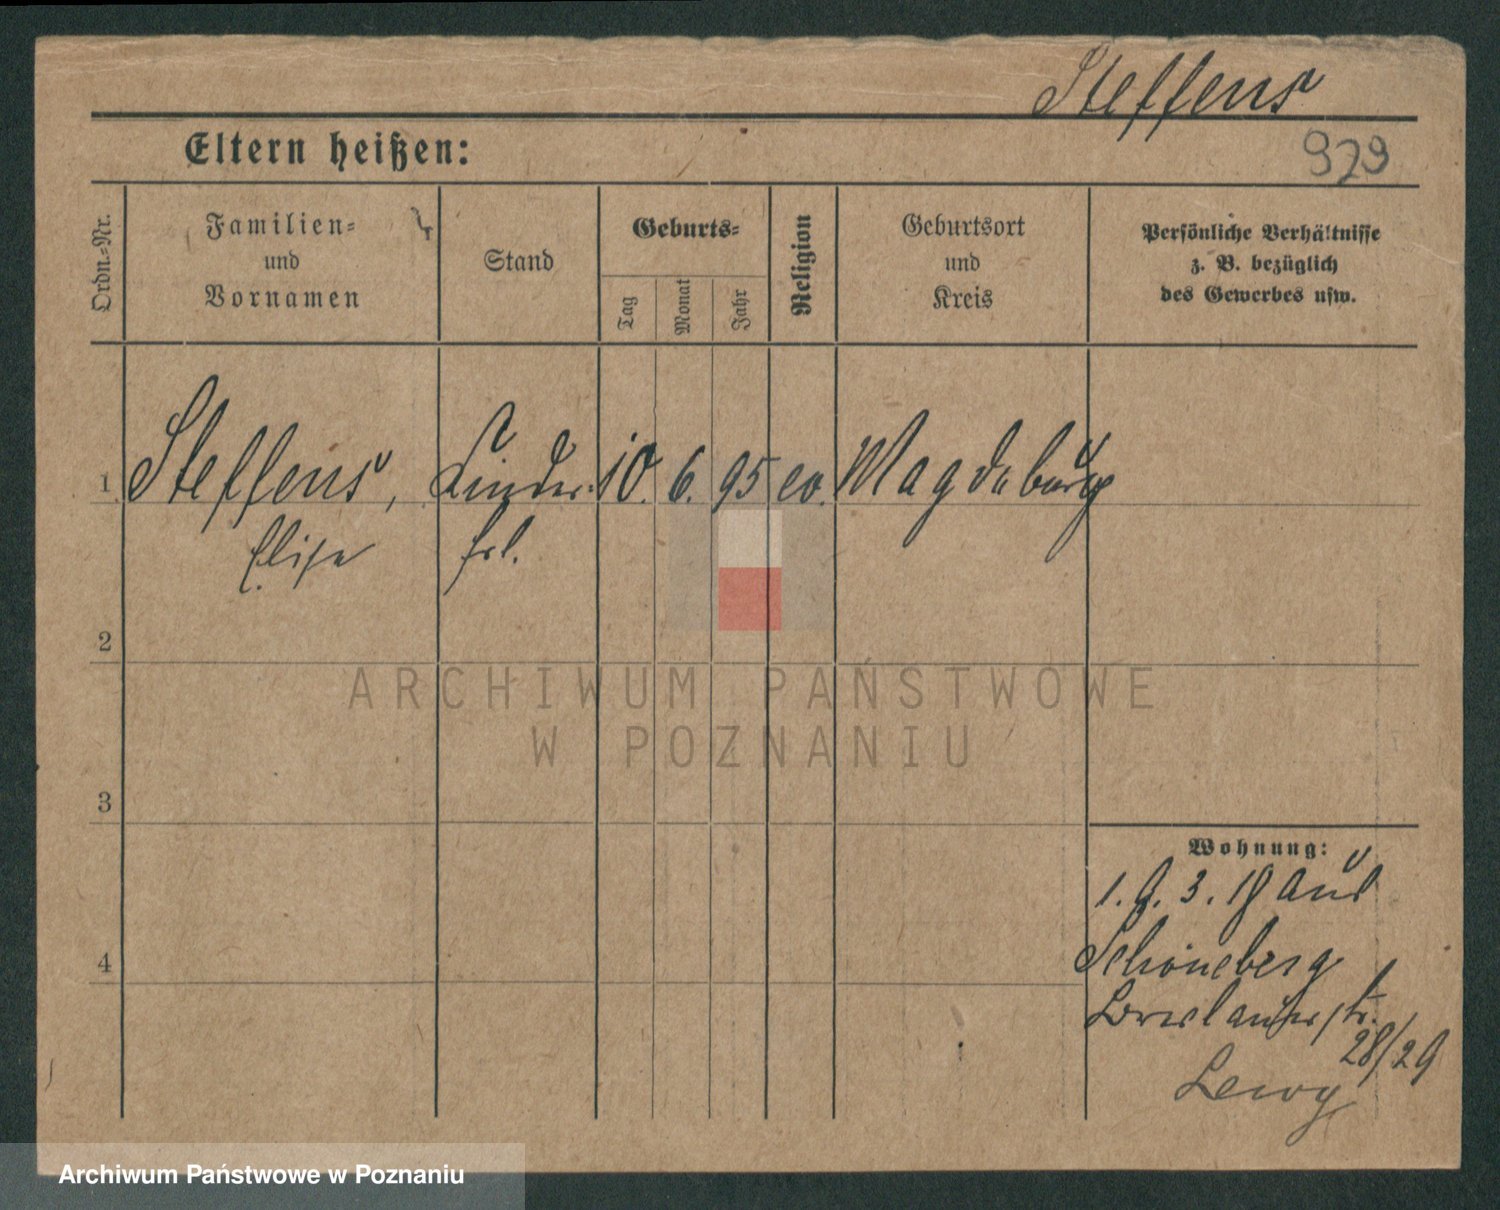 Steffens
Eltern heißen:
929
Ordn.-Nr.
Familien-
und
Vornamen
Stand
Geburts-
Tag
Monat
Jahr
Religion
Geburtsort
und
Kreis
Persönliche Verhältnisse
z. B. bezüglich
des Gewerbes usw.
1 Steffens, Kinder- 10. 6. 95 ev. Magdeburg
Elise frl.
2
3
4
Wohnung:
1. 9. 3. 18 aus
Schöneberg
str.
28/29
Lewy
ARCHIWUM PAŃSTWOWE
W POZNANIU
Archiwum Państwowe w Poznaniu